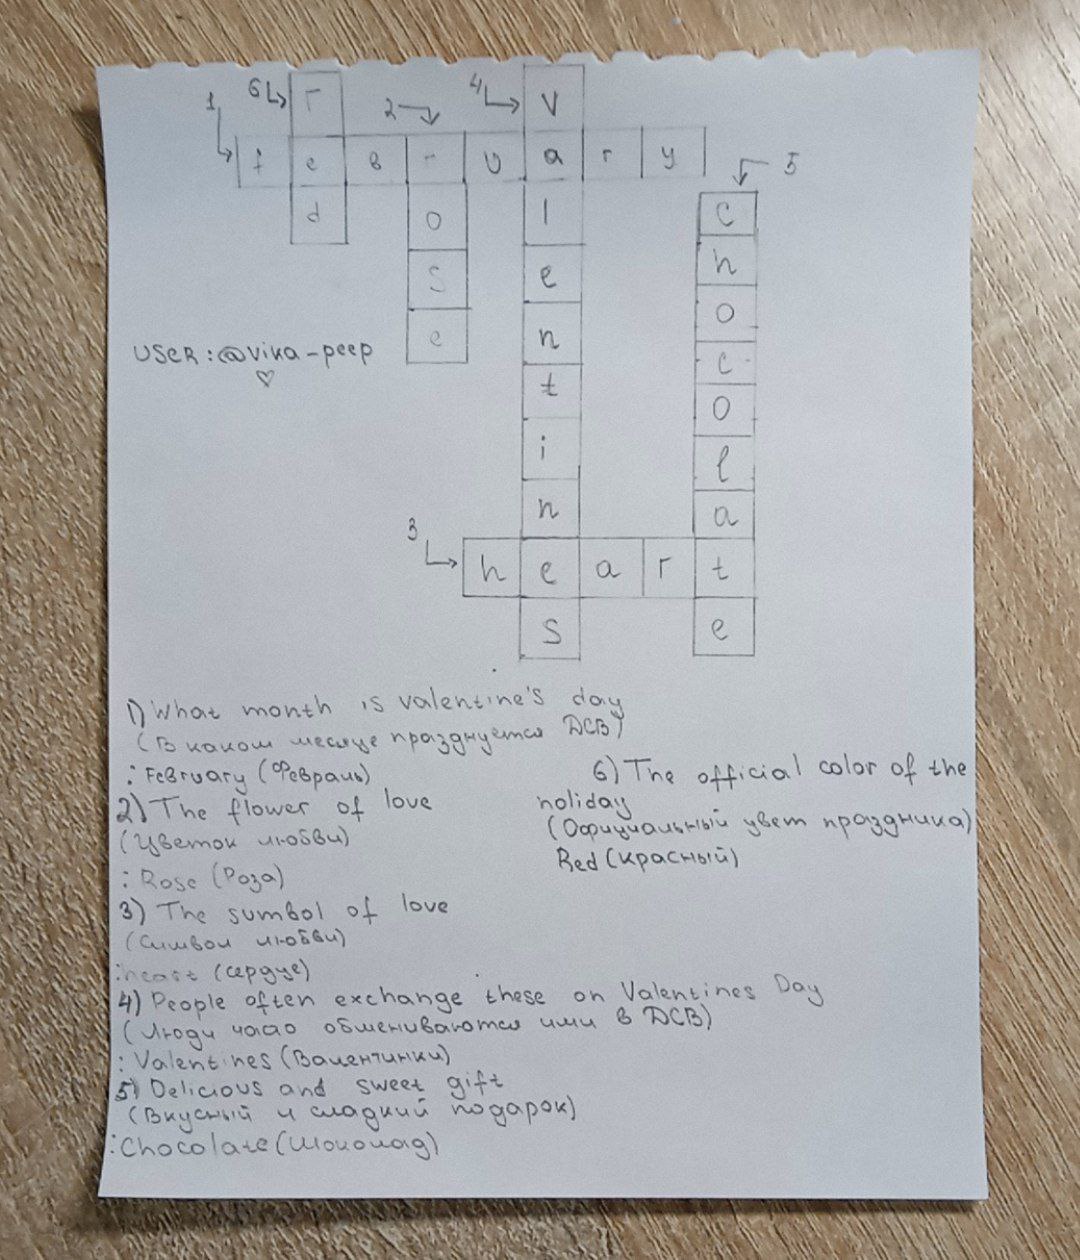 6 r
4 V
1 2
f e b r u a r y
5
d o l c
s e h
e n o
t c
i o
n l
a
3 h e a r t
s e
USER: @vika-peep
1) What month is valentine's day
(В каком месяце празднуется ДСВ)
: February (Февраль)
2) The flower of love
(Цветок любви)
: Rose (Роза)
3) The sumbol of love
(Символ любви)
: heart (сердце)
4) People often exchange these on Valentines Day
(Люди часто обмениваются ими в ДСВ)
: Valentines (Валентинки)
5) Delicious and sweet gift
(Вкусный и сладкий подарок)
: Chocolate (Шоколад)
6) The official color of the
holiday
(Официальный цвет праздника)
Red (красный)